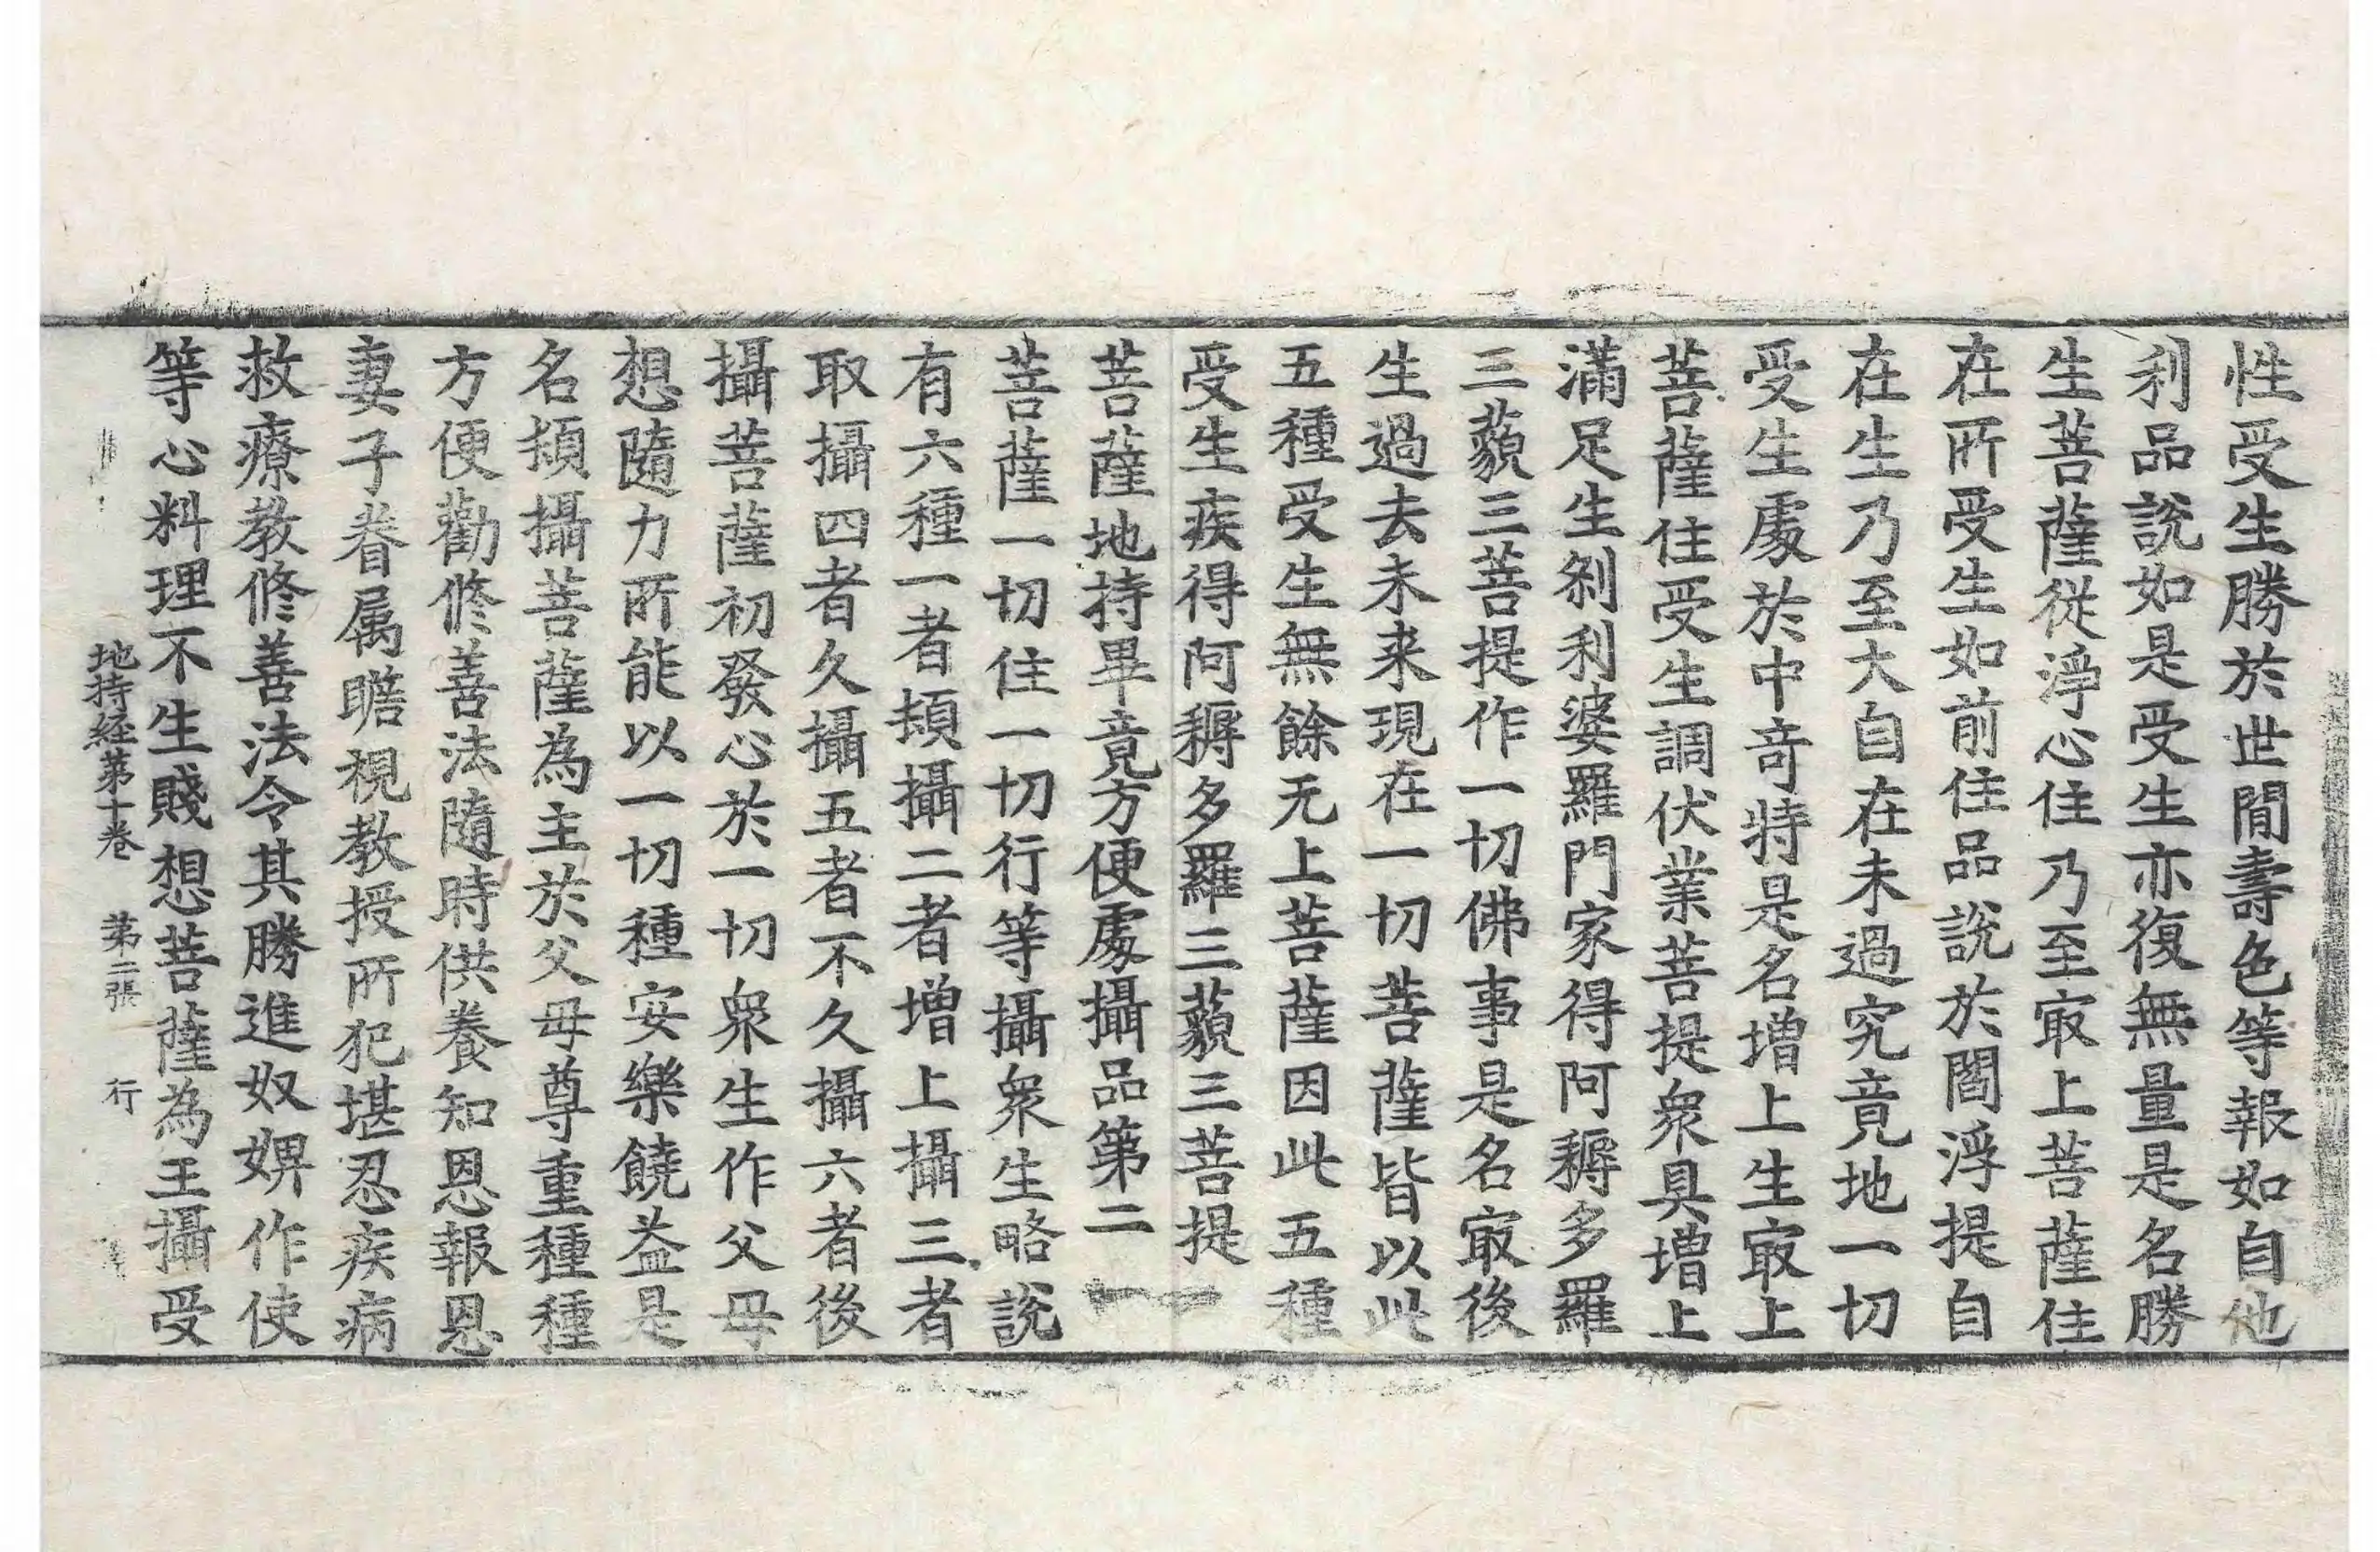 性受生勝於世間壽色等報如自他
利品說如是受生亦復無量是名勝
生菩薩從淨心住乃至冣上菩薩住
在所受生如前住品說於閻浮提自
在生乃至大自在未過究竟地一切
受生處於中竒特是名增上生冣上
菩薩住受生調伏業菩提衆具增上
滿足生剎利婆羅門家得阿耨多羅
三藐三菩提作一切佛事是名冣後
生過去未来現在一切菩薩皆以此
五種受生無餘无上菩薩因此五種
受生疾得阿耨多羅三藐三菩提
菩薩地持畢竟方便處攝品第二
菩薩一切住一切行等攝衆生略說
有六種一者頓攝二者增上攝三者
取攝四者久攝五者不久攝六者後
攝菩薩初發心於一切衆生作父母
想隨力所能以一切種安樂饒益是
名頓攝菩薩為主於父母尊重種種
方便勸修善法隨時供養知恩報恩
妻子眷属瞻視教授所犯堪忍疾病
救療教修善法令其勝進奴婢作使
等心料理不生賤想菩薩為王攝受
地持经第十卷 第二張 行